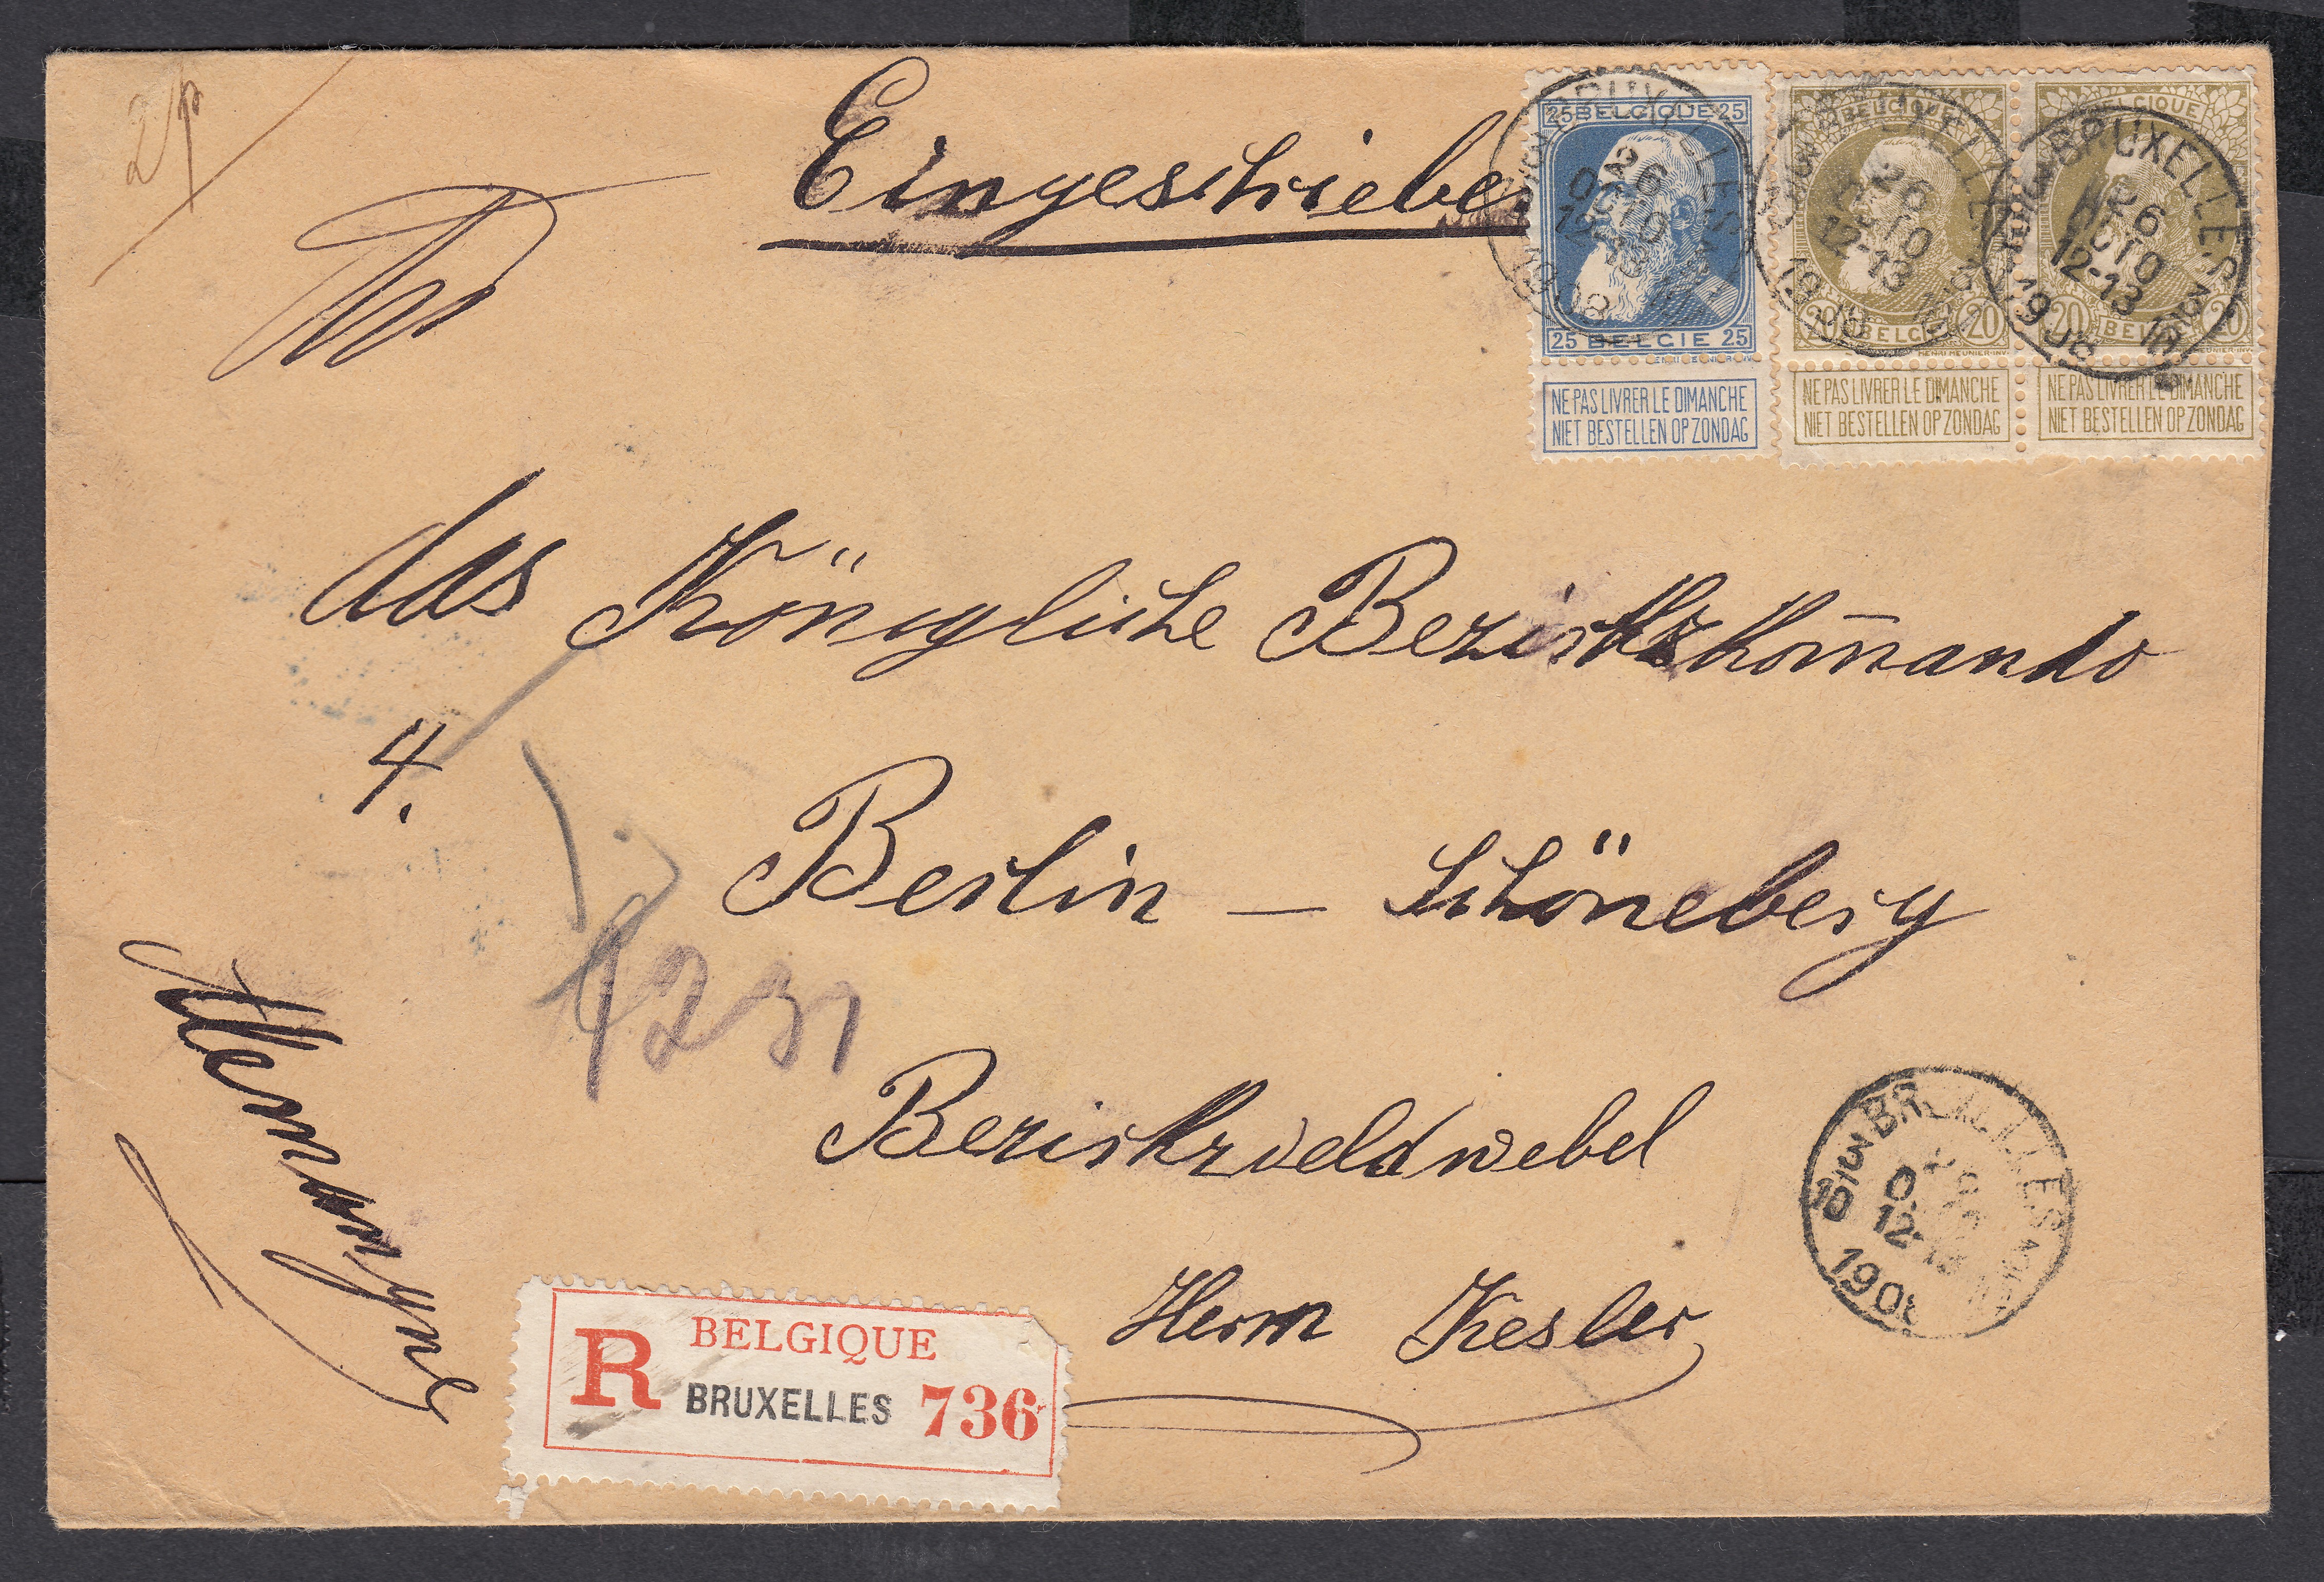 Eingeschrieben
An
das Königliche Bezirkskom̄ando
4.
Berlin - Schöneberg
Bezirksveldwebel
Herrn Kesler
25 BELGIQUE 25
25 BELGIE 25
NE PAS LIVRER LE DIMANCHE
NIET BESTELLEN OP ZONDAG
BELGIQUE
20 BELGIE 20
HENRI MEUNIER·INV.
NE PAS LIVRER LE DIMANCHE
NIET BESTELLEN OP ZONDAG
BELGIQUE
20 BELGIE 20
HENRI MEUNIER·INV.
NE PAS LIVRER LE DIMANCHE
NIET BESTELLEN OP ZONDAG
BRUXELLES
26
OCTO
12-13
1908
BRUXELLES
26
OCTO
12-13
1908
BRUXELLES
26
OCTO
12-13
1908
BRUXELLES
12-13
1908
R BELGIQUE
BRUXELLES 736